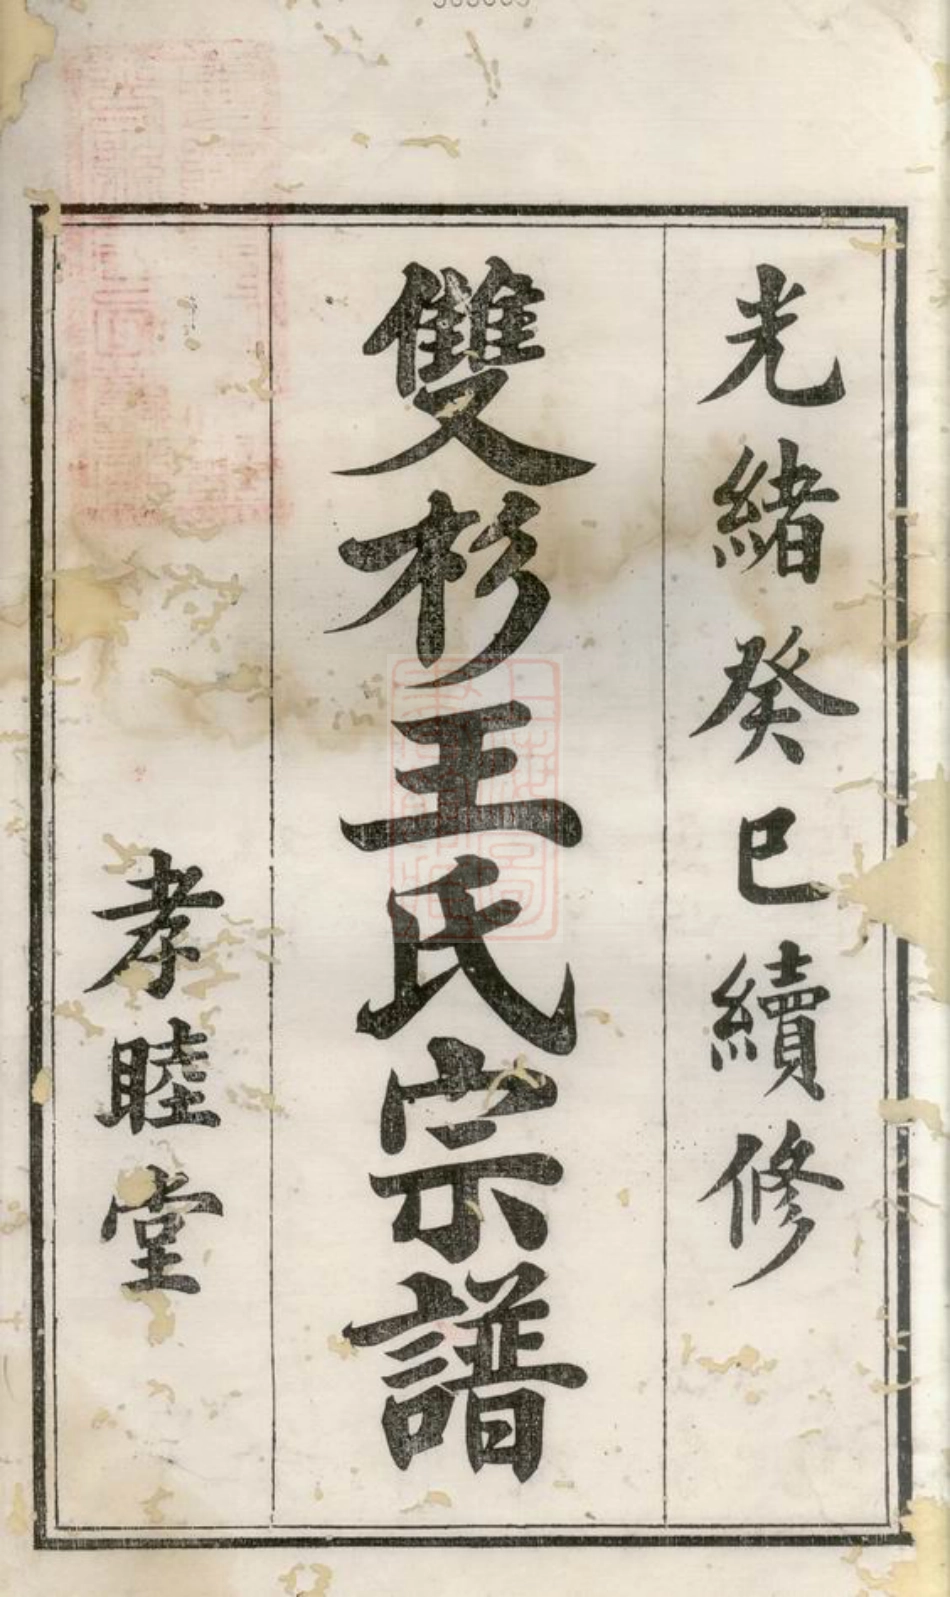 光緒癸巳續修
雙杉王氏宗譜
孝睦堂